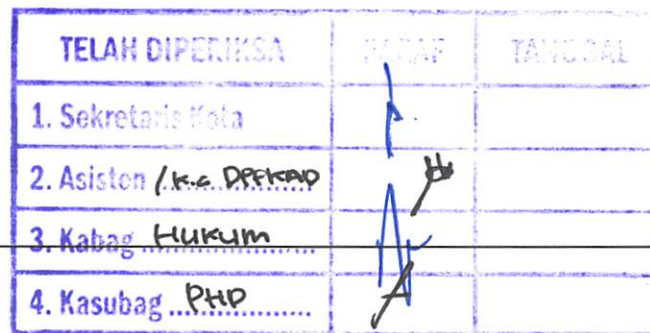 TELAH DIPERIKSA PARAF TANGGAL
1. Sekretaris Kota
2. Asisten / K.a DPPKAD
3. Kabag HUKUM
4. Kasubag PHD